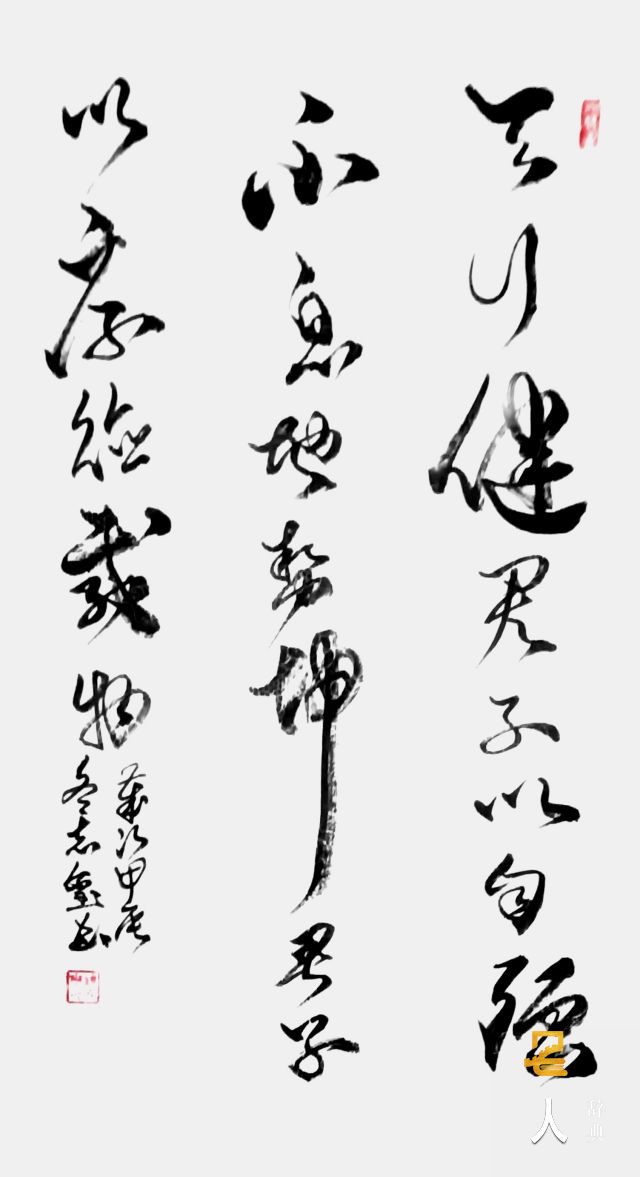 天行健君子以自强
不息地势坤君子
以厚德载物
岁次甲辰
冬志鑾书
名人
辞典